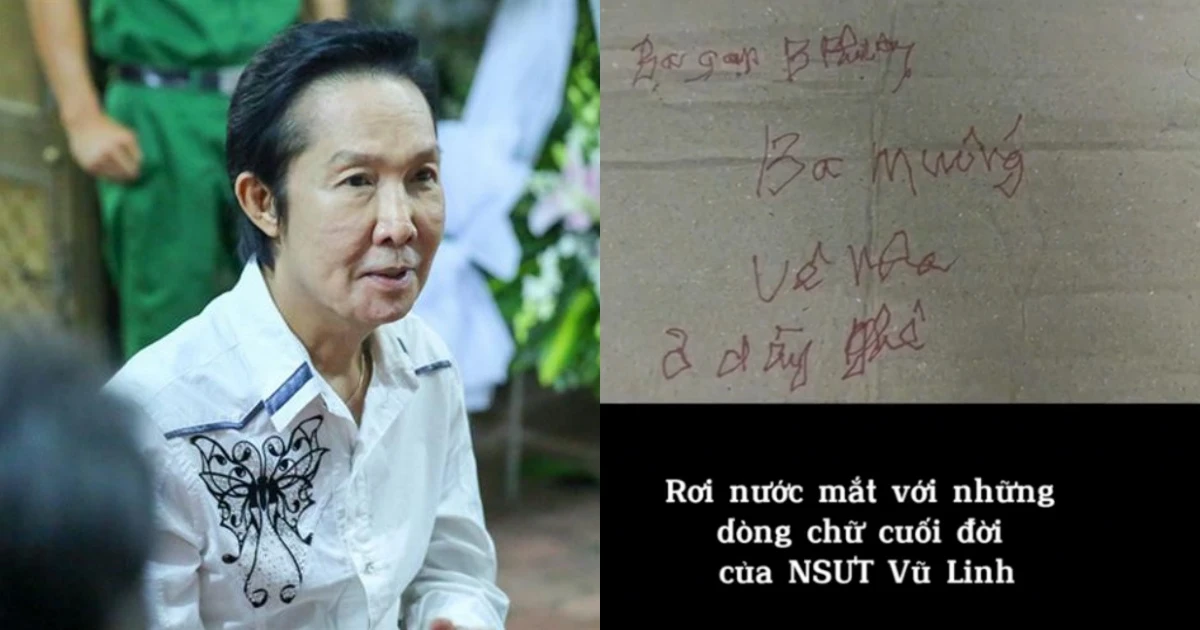 Ba gặp B
Ba muống
Về nhà
ở dãy ghế
Rơi nước mắt với những
dòng chữ cuối đời
của NSƯT Vũ Linh